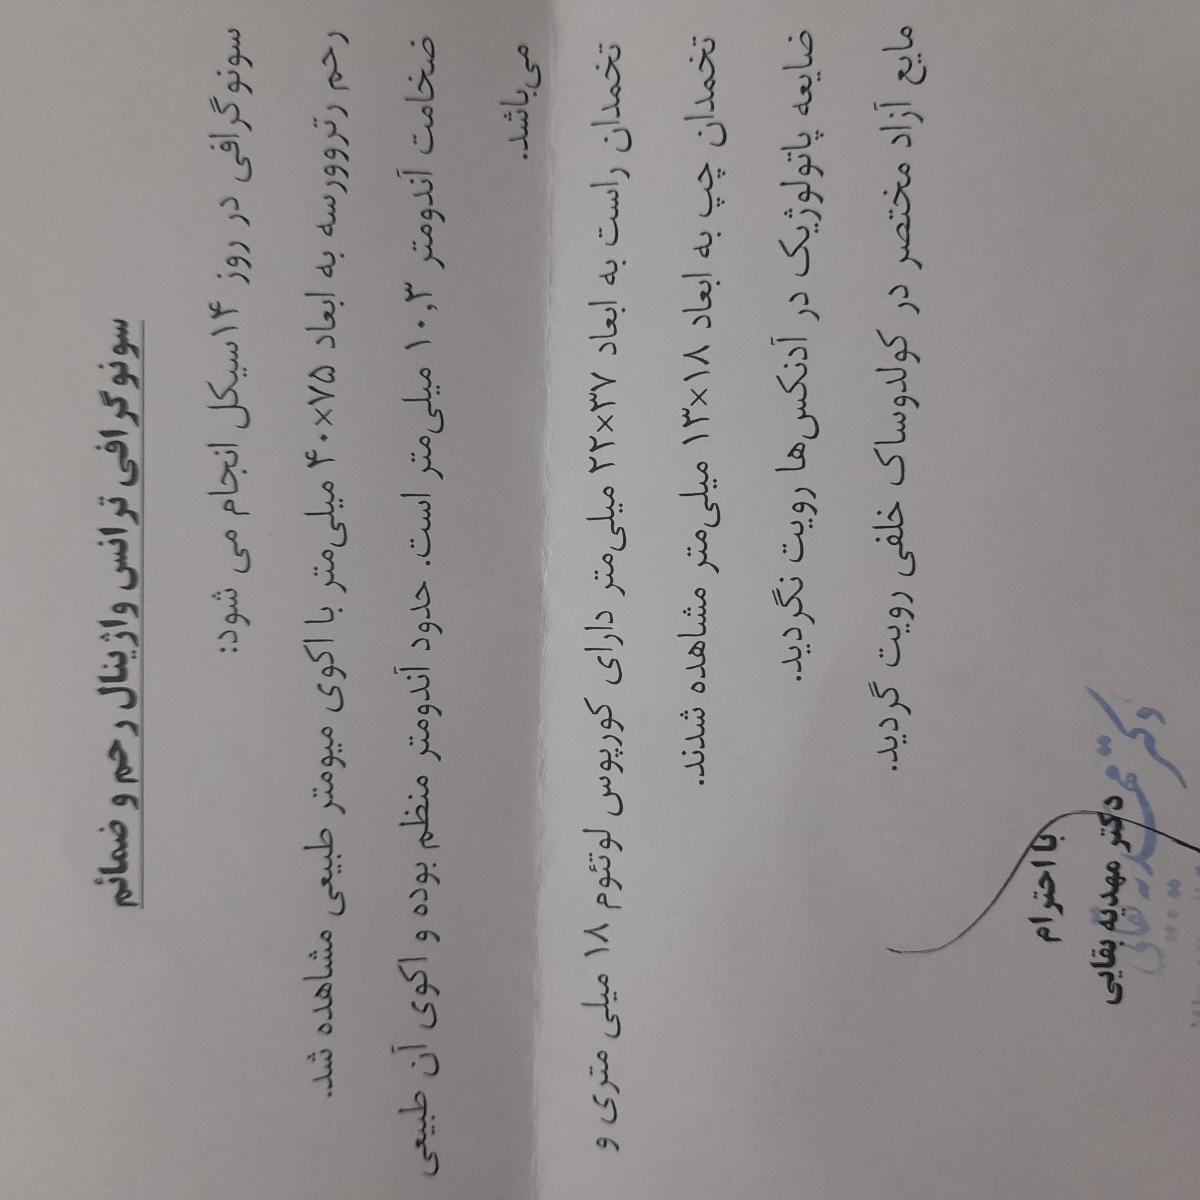 سونوگرافی ترانس واژینال رحم و ضمائم
سونوگرافی در روز ۱۴ سیکل انجام می شود:
رحم رتروورسه به ابعاد ۷۵×۴۰ میلی‌متر با اکوی میومتر طبیعی مشاهده شد.
ضخامت آندومتر ۱۰٫۳ میلی‌متر است. حدود آندومتر منظم بوده و اکوی آن طبیعی
می‌باشد.
تخمدان راست به ابعاد ۳۷×۲۲ میلی‌متر دارای کورپوس لوتئوم ۱۸ میلی متری و
تخمدان چپ به ابعاد ۱۸×۱۳ میلی‌متر مشاهده شدند.
ضایعه پاتولوژیک در آدنکس‌ها رویت نگردید.
مایع آزاد مختصر در کولدوساک خلفی رویت گردید.
با احترام
دکتر مهدیه بقایی
دکتر مهدیه بقایی